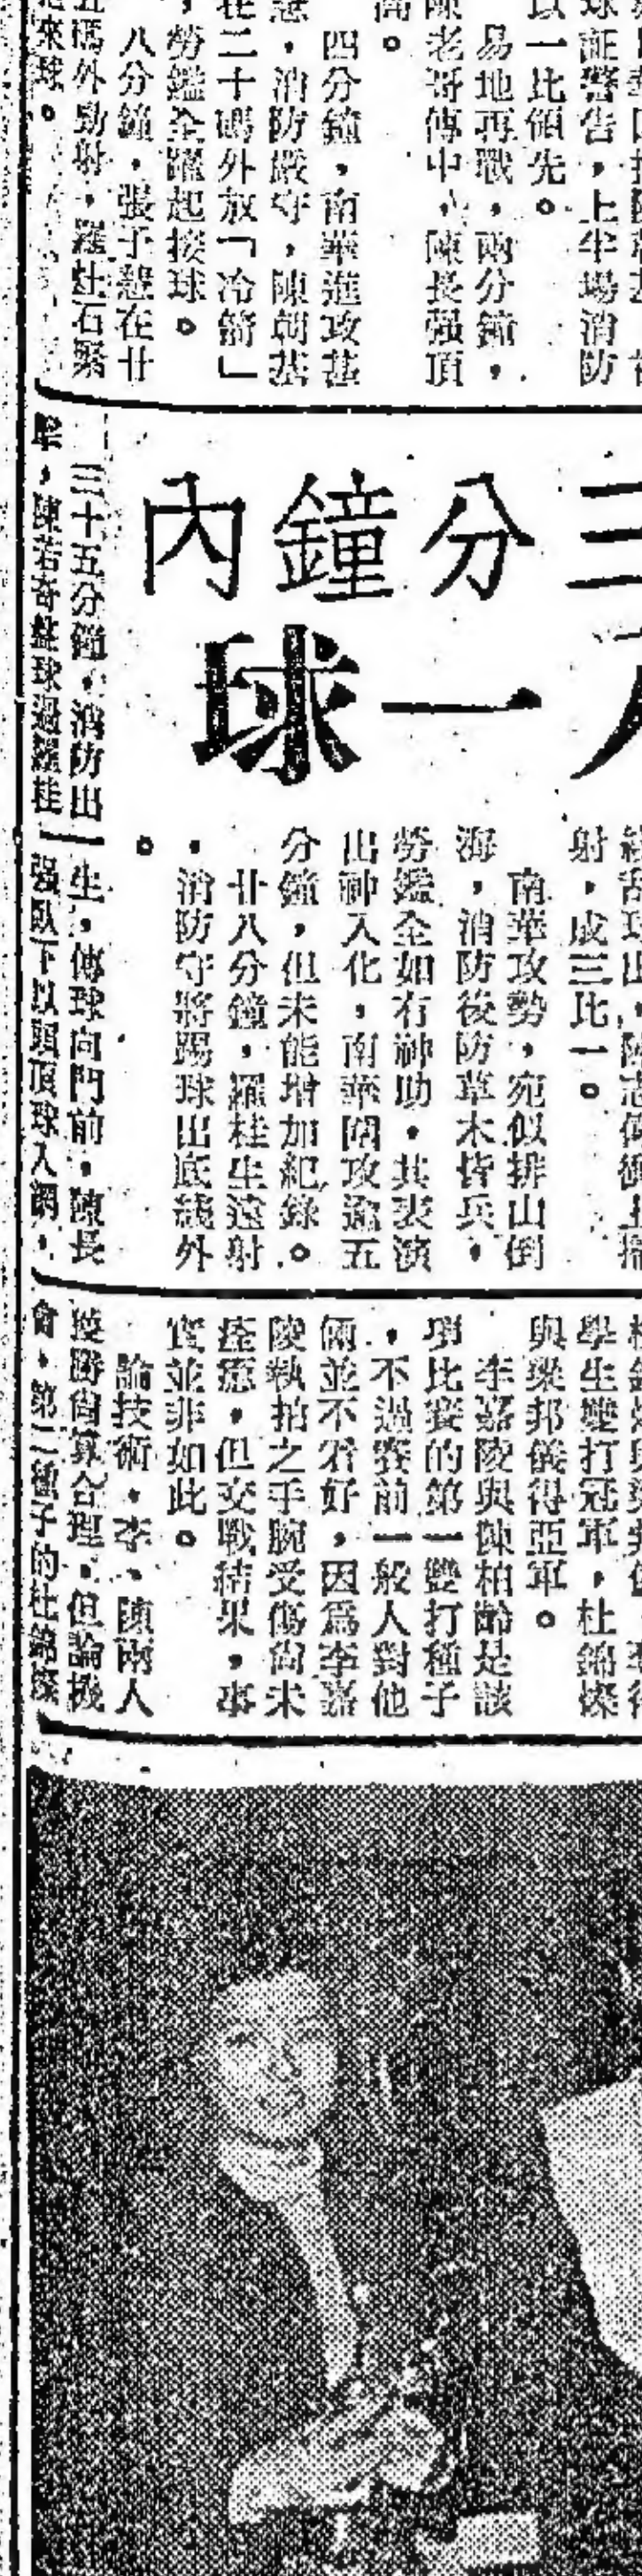 球証警告，上半場消防
以一比領先。
易地再戰，兩分鐘，
陳老哥傳中，陳長强頂
高。
四分鐘，南華進攻甚
急，消防嚴守，陳朝基
在二十碼外放「冷箭」
，勞鑑全躍起接球。
八分鐘，張子慧在廿
五碼外勁射，羅灶石緊
來球。
三分鐘內
一球
射，成三比一。
南華攻勢，宛似排山倒
海，消防後防草木皆兵，
勞鑑全如有神助，其表演
出神入化，南華圍攻逾五
分鐘，但未能增加紀錄。
廿八分鐘，羅桂生遠射
，消防守將踢球出底綫外
。
三十五分鐘，消防出
擊，陳若奇盤球過羅桂
生，傳球向門前，陳長
强臥下以頭頂球入網，
學生雙打冠軍，杜錦燦
與梁邦儀得亞軍。
李嘉陵與陳柏齡是該
項比賽的第一雙打種子
，不過賽前一般人對他
倆並不看好，因爲李嘉
陵執拍之手腕受傷尙未
痊癒，但交戰結果，事
實並非如此。
論技術，李、陳兩人
獲勝尙算合理，但論機
會，第二種子的杜錦燦